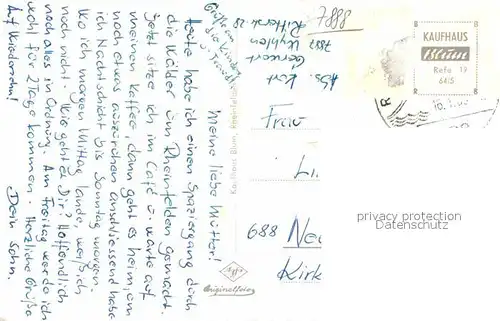 Meine liebe Mutter!
Heute habe ich einen Spaziergang durch
die Wälder um Rheinfelden gemacht.
Jetzt sitze ich im Café u. warte auf
meinen Kaffee dann geht es heim, um
noch etwas auszuruhen anschliessend habe
ich Nachtschicht bis Sonntag morgen.
Wo ich morgen Mittag lande, weiß ich
noch nicht. Wie geht es Dir? Hoffendlich
noch alles in Ordnung. Am Freitag werde ich
wohl für 2 Tage kommen. Herzliche Grüße
Auf Wiedersehn! Dein Sohn.
Grüße an
Abs. Karl
7887 Wyhlen
Ritterstr. 28
7888
KAUFHAUS
Blum
Refa 19
6615
Kaufhaus Blum, Rheinfelden
Agfa
Originalfoto
Frau
688 Neu
Kirk
privacy protection
Datenschutz